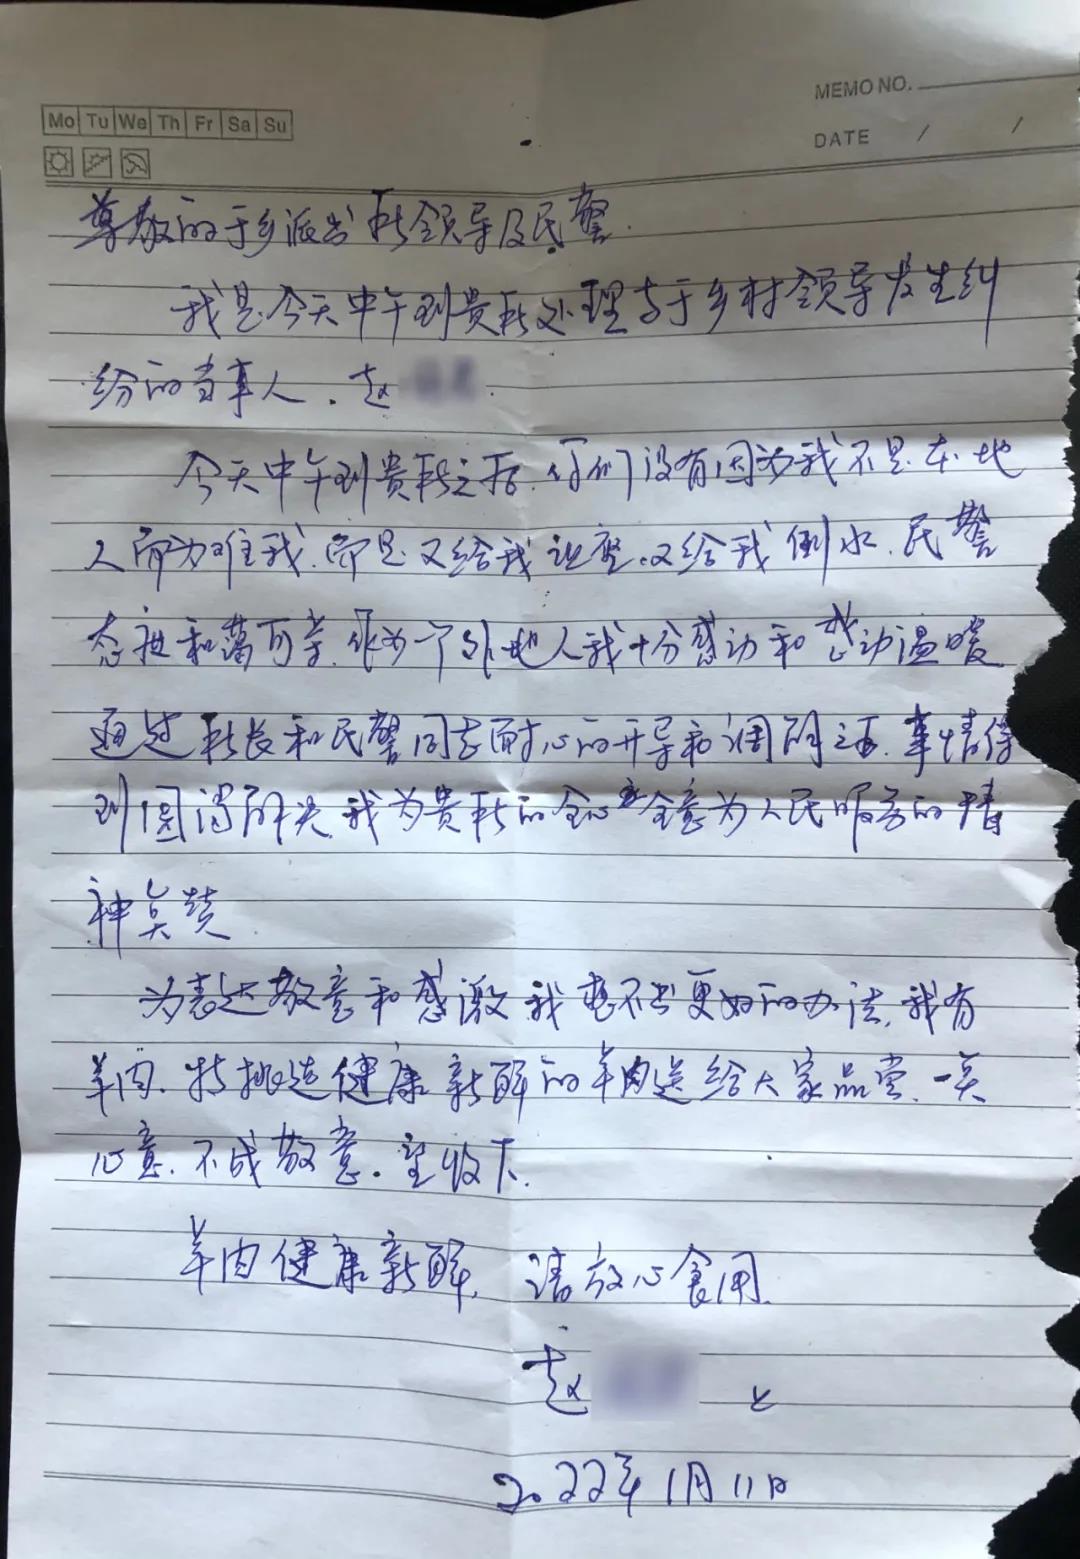 MEMO NO.
Mo Tu We Th Fr Sa Su
DATE / /
尊敬的于乡派出所领导及民警.
我是今天中午到贵所处理与于乡村领导发生纠
纷的当事人.赵
今天中午到贵所之后,你们没有因为我不是本地
人而为难我.而是又给我让座.又给我倒水.民警
态度和蔼可亲.作为一个外地人我十分感动和感动温暖
通过所长和民警同志耐心的开导和调解之后.事情得
到圆满解决 我为贵所的全心全意为人民服务的精
神点赞.
为表达敬意和感激 我想不出更好的办法,我有
羊肉.特挑选健康新鲜的羊肉送给大家品尝.一点
心意.不成敬意.望收下.
羊肉健康新鲜, 请放心食用.
赵
2022年1月11日